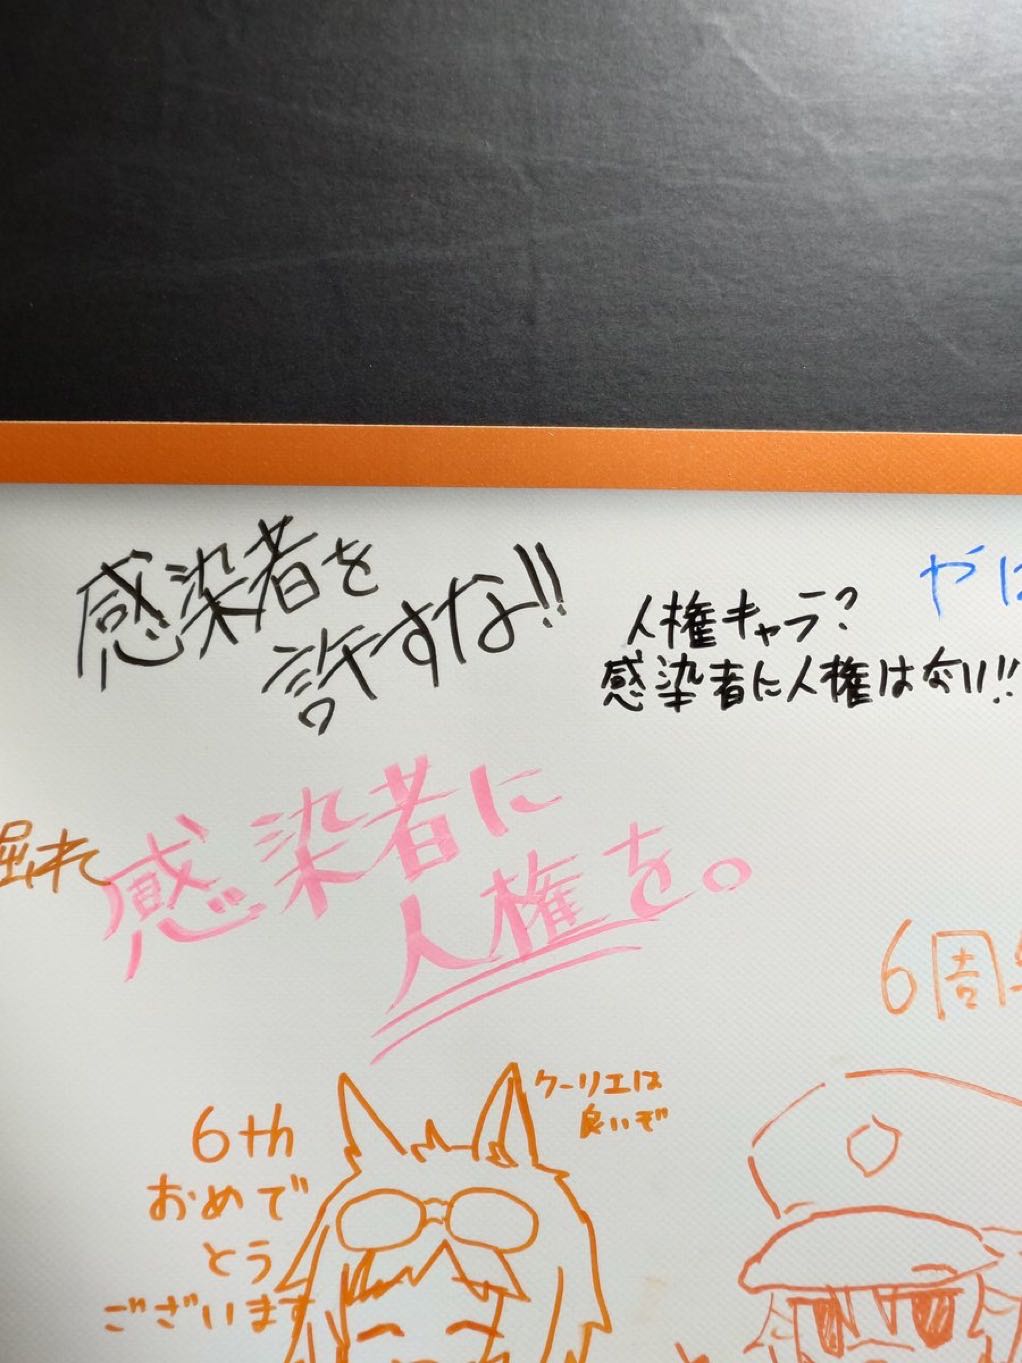 感染者を
許すな!!
人権キャラ?
感染者に人権はない!!
やは
掘れて
感染者に
人権を。
6周年
クーリエは
良いぞ
6th
おめで
とう
ございます